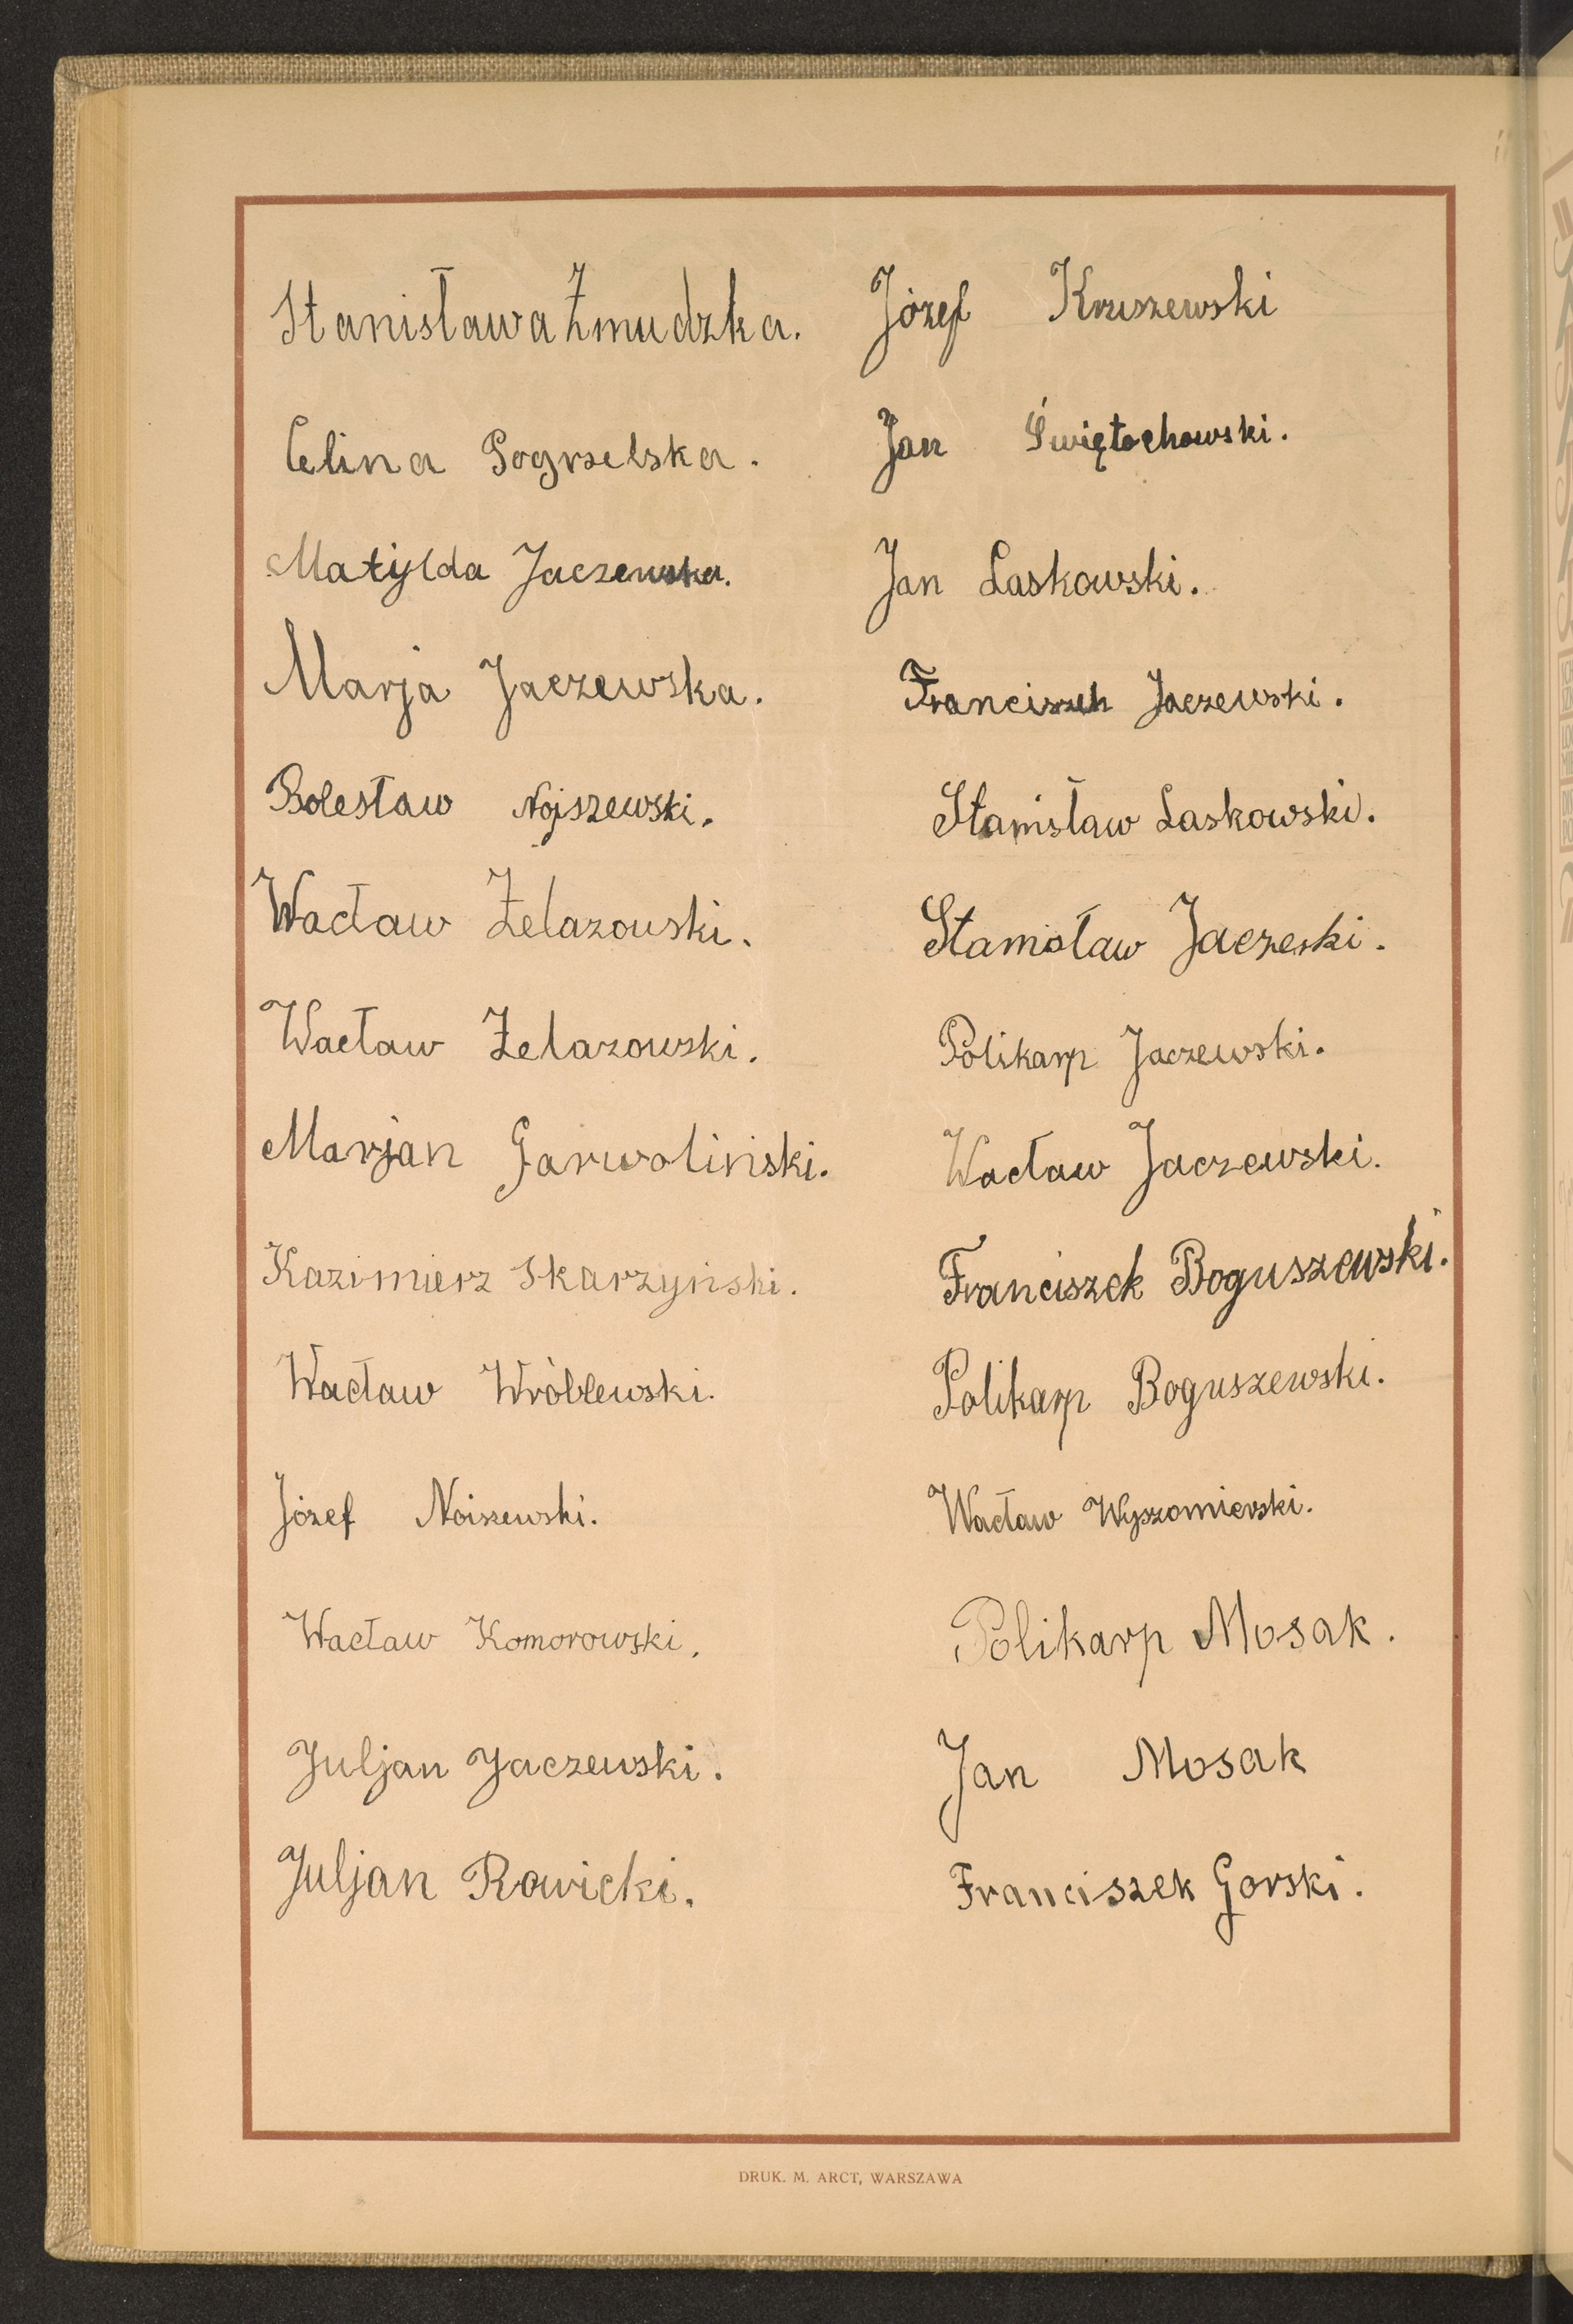 Stanisława Żmudzka.
Celina Pogrzelska.
Matylda Jaczewska.
Marja Jaczewska.
Bolesław Nojszewski.
Wacław Żelazowski.
Wacław Żelazowski.
Marjan Garwoliński.
Kazimierz Skarzyński.
Wacław Wróblewski.
Józef Noiszewski.
Wacław Komorowski.
Juljan Jaczewski.
Juljan Rawicki.
Józef Kruszewski
Jan Świętochowski.
Jan Laskowski.
Franciszek Jaczewski.
Stanisław Laskowski.
Stanisław Jaczeski.
Polikarp Jaczewski.
Wacław Jaczewski.
Franciszek Boguszewski.
Polikarp Boguszewski.
Wacław Wyszomierski.
Polikarp Mosak.
Jan Mosak
Franciszek Gorski.
DRUK. M. ARCT, WARSZAWA